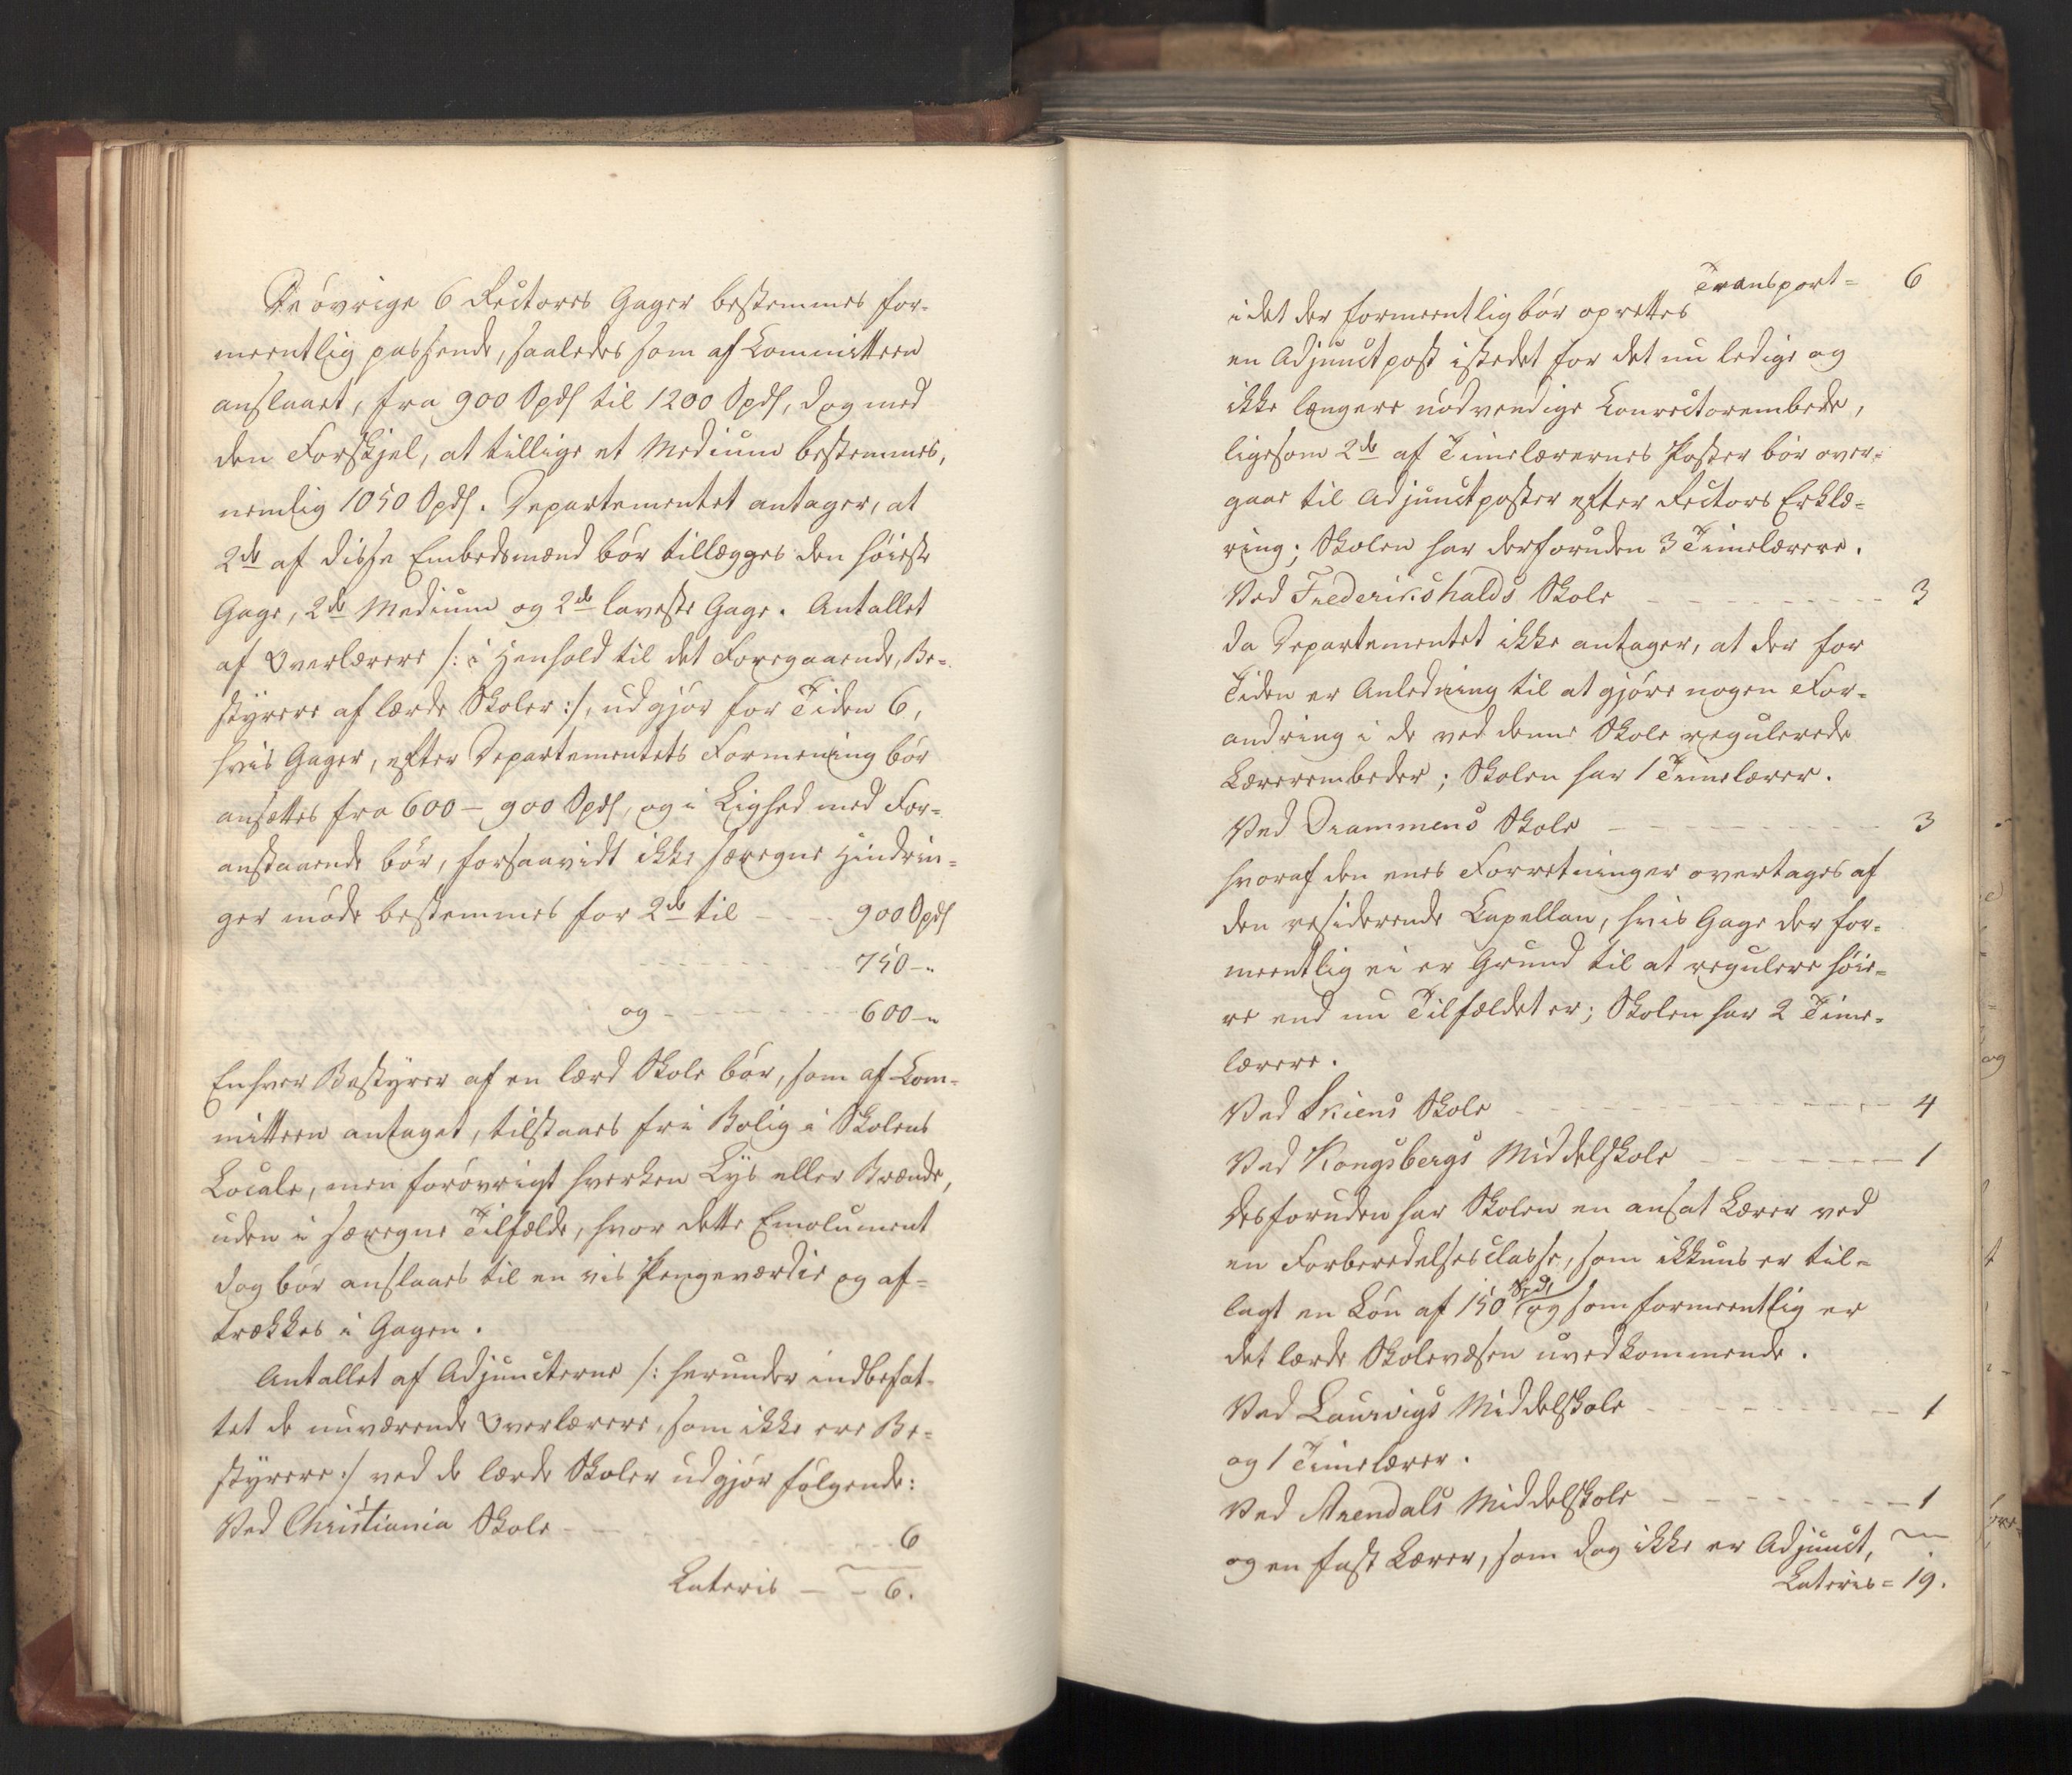 De övrige 6 Rectorers Gager bestemmes for-
meentlig passende, saaledes som af Committeen
anslaaet, fra 900 Spdl til 1200 Spdl, dog med
den Forskjel, at tillige et Medium bestemmes,
nemlig 1050 Spdl. Departementet antager, at
2de af disse Embedsmænd bör tillægges den höieste
Gage, 2de Medium og 2de laveste Gage. Antallet
af Overlærere /: i Henhold til det Foregaaende, Be-
styrere af lærde Skoler :/, udgjör for Tiden 6,
hvis Gager, efter Departementets Formening bör
ansættes fra 600 - 900 Spdl, og i Lighed med For-
anstaaende bör, forsaavidt ikke særegne Hindrin-
ger möde bestemmes for 2de til - - - 900 Spdl
750 - "
og - - - - - 600 - "
Enhver Bestyrer af en lærd Skole bör, som af Com-
mitteen antaget, tilstaaes fri Bolig i Skolens
Locale, men forövrigt hverken Lys eller Brænde,
uden i særegne Tilfælde, hvor dette Emolument
dog bör anslaaes til en vis Pengeværdie og af-
trækkes i Gagen.
Antallet af Adjuncterne /: herunder indbefat-
tet de nuværende Overlærere, som ikke ere Be-
styrere :/ ved de lærde Skoler udgjör fölgende:
Ved Christiania Skole - - - - 6
Lateris - - 6.
Transport = 6
idet der formeentlig bör oprettes
en Adjunctpost istedet for det nu ledige og
ikke længere nödvendige Conrectorembede,
ligesom 2de af Timelærernes Poster bör over-
gaae til Adjunctposter efter Rectors Erklæ-
ring; Skolen har desforuden 3 Timelærere.
Ved Frederikshalds Skole - - - - 3
da Departementet ikke antager, at der for
Tiden er Anledning til at gjöre nogen For-
andring i de ved denne Skole regulerede
Lærerembeder; Skolen har 1 Timelærer.
Ved Drammens Skole - - - - 3
hvoraf den enes Forretninger overtages af
den residerende Capellan, hvis Gage der for-
meentlig ei er Grund til at regulere höie-
re end nu Tilfældet er; Skolen har 2 Time-
lærere.
Ved Skiens Skole - - - - 4
Ved Kongsbergs Middelskole - - - - 1
desforuden har Skolen en ansat Lærer ved
en Forberedelsesclasse, som ikkuns er til-
lagt en Lön af 150 Spdl og som formeentlig er
det lærde Skolevæsen uvedkommende.
Ved Laurvigs Middelskole - - - - 1
og 1 Timelærer.
Ved Arendals Middelskole - - - - 1
og en fast Lærer, som dog ikke er Adjunct,
Lateris = 19.